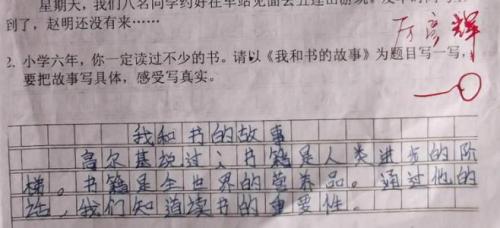 星期天，我们八名同学约好在车站见面去五莲山游玩。
到了，赵明还没有来……
2. 小学六年，你一定读过不少的书。请以《我和书的故事》为题目写一写，
要把故事写具体，感受写真实。
我和书的故事
高尔基说过：书籍是人类进步的阶
梯。书籍是全世界的营养品。通过他的
话，我们知道读书的重要性。